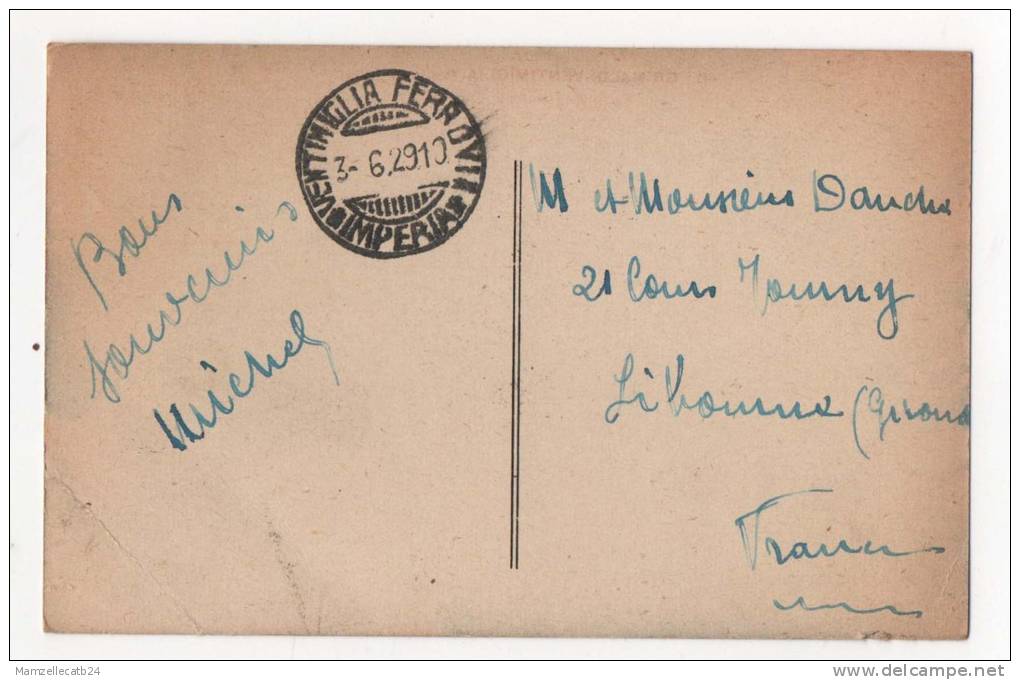 VENTIMIGLIA FERROVIA
3-6.29.10
IMPERIA
Bons
souvenirs
Michel
M et Monsieur
21 Cours Tourny
Libourne (Gironde
France
Mamzellecatb24
delcampe.net